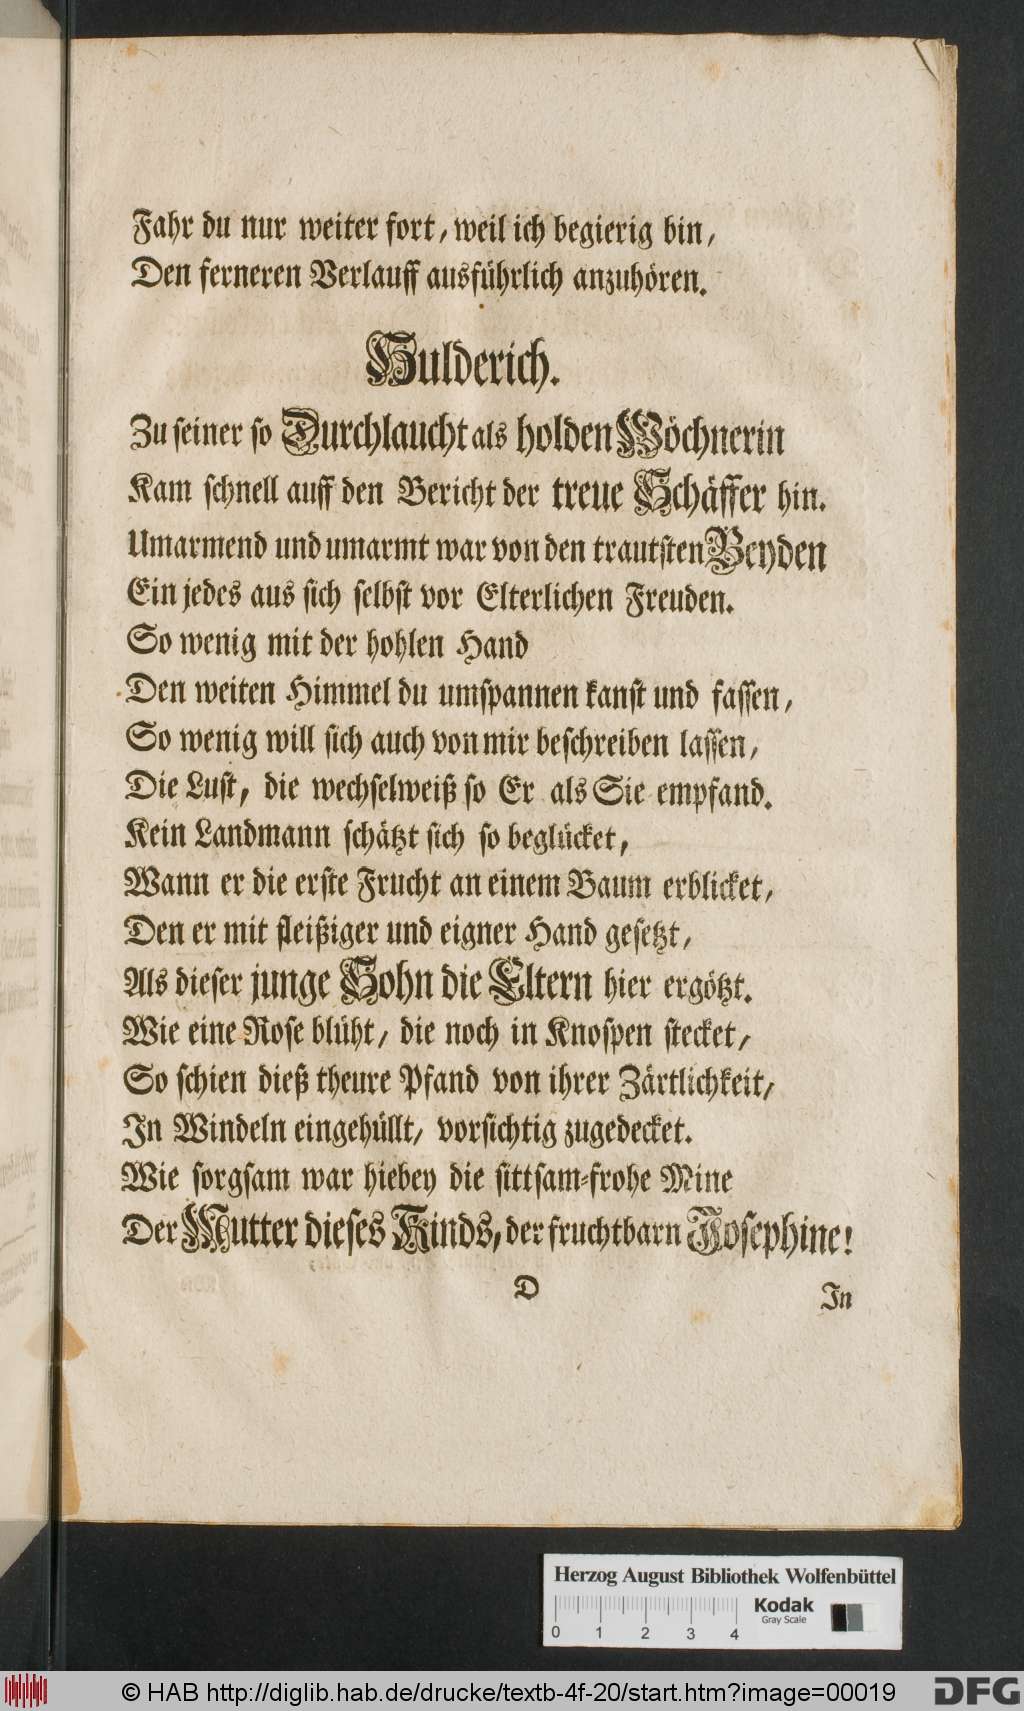 Fahr du nur weiter fort, weil ich begierig bin,
Den ferneren Verlauff ausführlich anzuhören.
Hulderich.
Zu seiner so Durchlaucht als holden Wöchnerin
Kam schnell auff den Bericht der treue Schäffer hin.
Umarmend und umarmt war von den trautsten Beyden
Ein jedes aus sich selbst vor Elterlichen Freuden.
So wenig mit der hohlen Hand
Den weiten Himmel du umspannen kanst und fassen,
So wenig will sich auch von mir beschreiben lassen,
Die Lust, die wechselweiß so Er als Sie empfand.
Kein Landmann schätzt sich so beglücket,
Wann er die erste Frucht an einem Baum erblicket,
Den er mit fleißiger und eigner Hand gesetzt,
Als dieser junge Sohn die Eltern hier ergötzt.
Wie eine Rose blüht, die noch in Knospen stecket,
So schien dieß theure Pfand von ihrer Zärtlichkeit,
In Windeln eingehüllt, vorsichtig zugedecket.
Wie sorgsam war hiebey die sittsam-frohe Mine
Der Mutter dieses Kinds, der fruchtbarn Josephine!
D
In
Herzog August Bibliothek Wolfenbüttel
Kodak
Gray Scale
0 1 2 3 4
© HAB http://diglib.hab.de/drucke/textb-4f-20/start.htm?image=00019
DFG